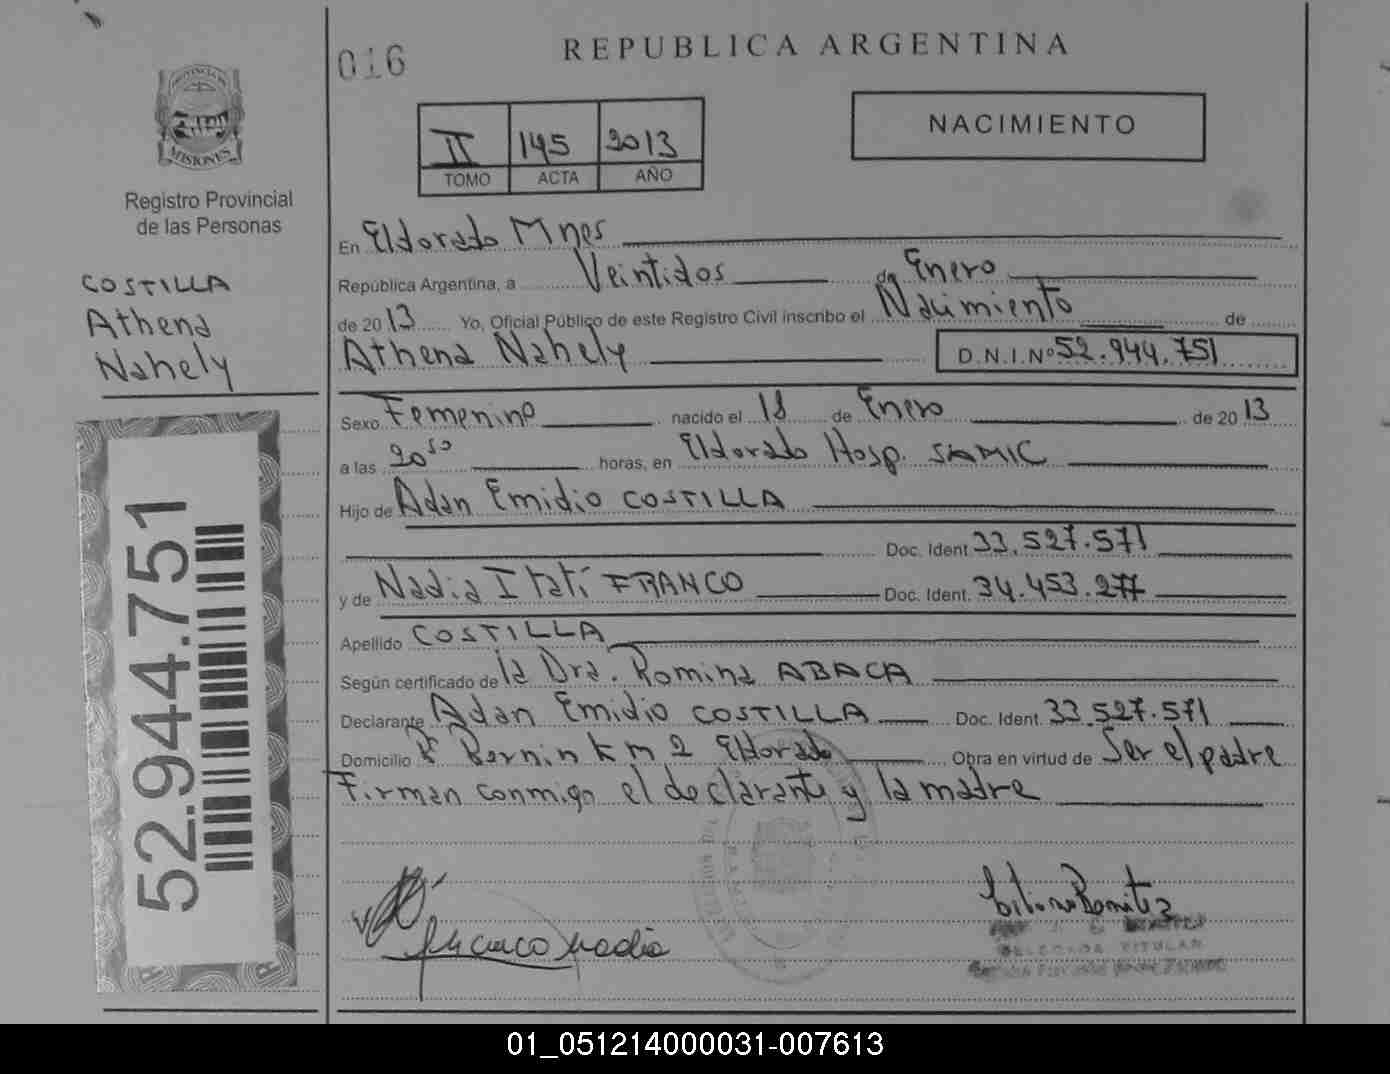 016
REPUBLICA ARGENTINA
NACIMIENTO
II 145 2013
TOMO ACTA AÑO
PROVINCIA DE
MISIONES
Registro Provincial
de las Personas
COSTILLA
Athena
Nahely
52.944.751
En Eldorado Mnes
República Argentina, a Veintidos de Enero
de 2013 Yo, Oficial Público de este Registro Civil inscribo el Nacimiento de
Athena Nahely D.N.I.Nº 52.944.751
Sexo Femenino nacido el 18 de Enero de 2013
a las 20 50 horas, en Eldorado Hosp. SAMIC
Hijo de Adan Emidio COSTILLA
Doc. Ident. 33.527.571
y de Nadia Itatí FRANCO Doc. Ident. 34.453.277
Apellido COSTILLA
Según certificado de la Dra. Romina ABACA
Declarante Adan Emidio COSTILLA Doc. Ident. 33.527.571
Domicilio Km 2 Eldorado Obra en virtud de Ser el padre
Firman conmigo el declarante y la madre
Franco Nadia
Benitez
DELEGADA TITULAR
01_051214000031-007613